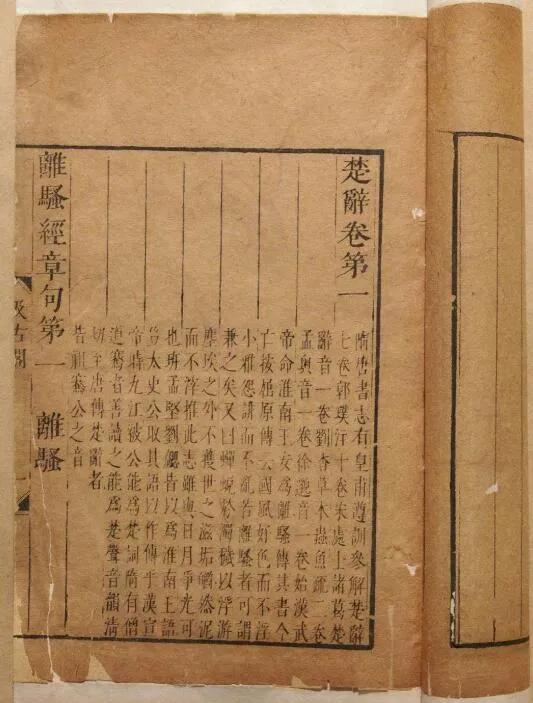 楚辭卷第一
隋唐書志有皇甫遵訓參解楚辭
七卷郭璞注十卷宋處士諸葛楚
辭音一卷劉杳草木蟲魚疏二卷
孟奧音一卷徐邈音一卷始漢武
帝命淮南王安爲離騷傳其書今
亡按屈原傳云國風好色而不淫
小雅怨誹而不亂若離騷者可謂
兼之矣又曰蟬蛻於濁穢以浮游
塵埃之外不獲世之滋垢皭然泥
而不滓推此志雖與日月爭光可
也班孟堅劉勰皆以爲淮南王語
豈太史公取其語以作傳乎漢宣
帝時九江被公能爲楚詞隋有僧
道騫者善讀之能爲楚聲音韻清
切至唐傳楚辭者
皆祖騫公之音
離騷經章句第一 離騷
汲古閣